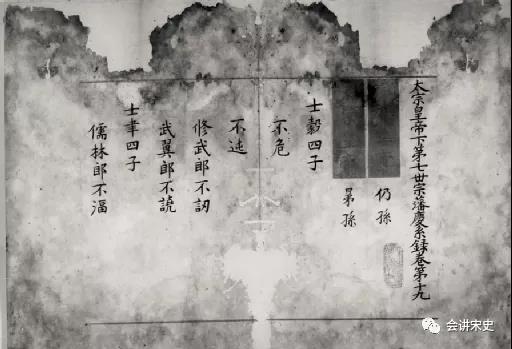 太宗皇帝下第七世宗藩慶系録卷第十九
仍孫
昴孫
士㲄四子
不危
不迱
修武郎不訒
武翼郎不譊
士聿四子
儒林郎不湢
会讲宋史